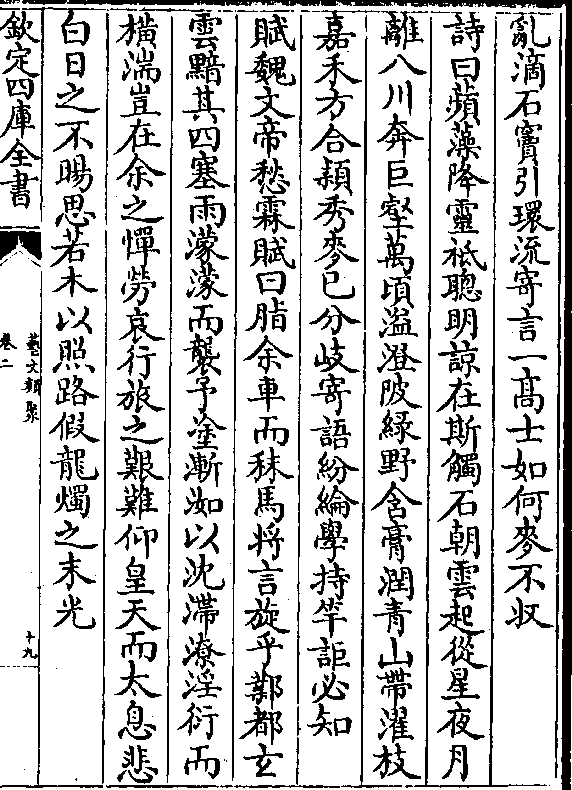 亂滴石竇引環流寄言一髙士如何麥不収
詩曰蘋藻降靈祗聰明諒在斯觸石朝雲起從星夜月
離八川奔巨壑萬頃溢澄陂綠野含膏潤青山帶濯枝
嘉禾方合頴秀麥已分岐寄語紛綸學持竿詎必知
賦魏文帝愁霖賦曰脂余車而秣馬將言旋乎鄴都玄
雲黯其四塞雨濛濛而襲予塗漸洳以沈滯潦淫衍而
橫湍豈在余之憚勞哀行旅之艱難仰皇天而太息悲
白日之不暘思若木以照路假龍燭之末光
欽定四庫全書
藝文類聚
卷二
十九